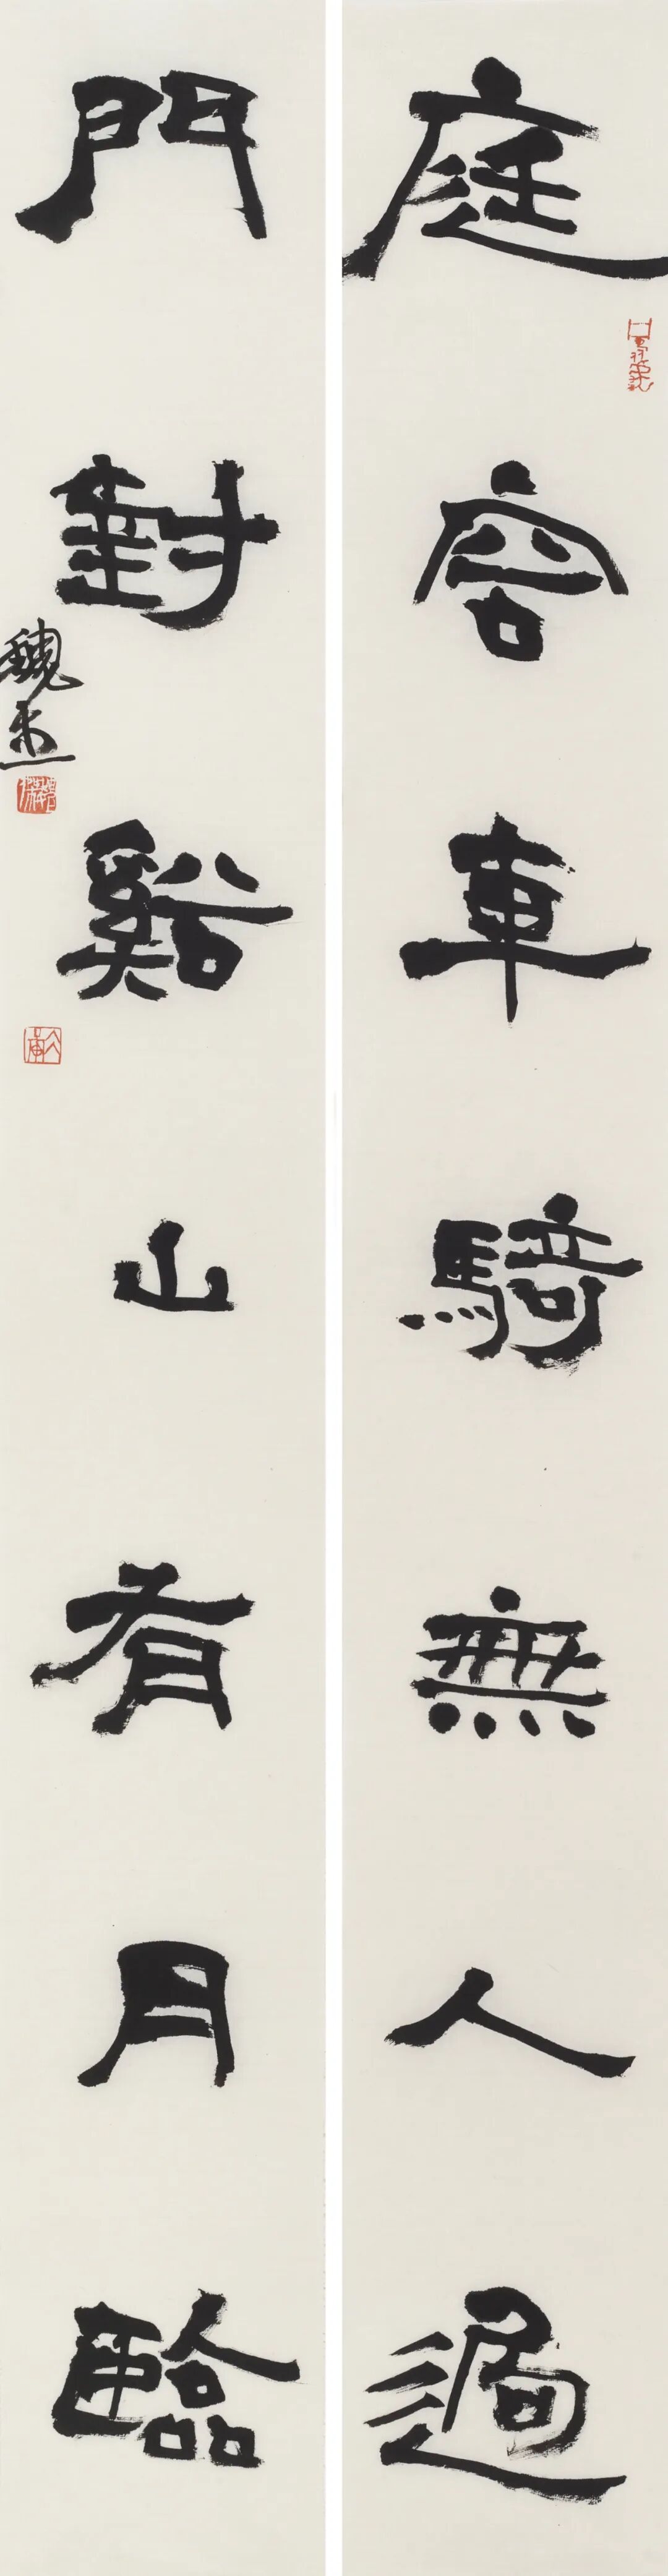 庭容車騎無人過
門對谿山有月臨
魏杰